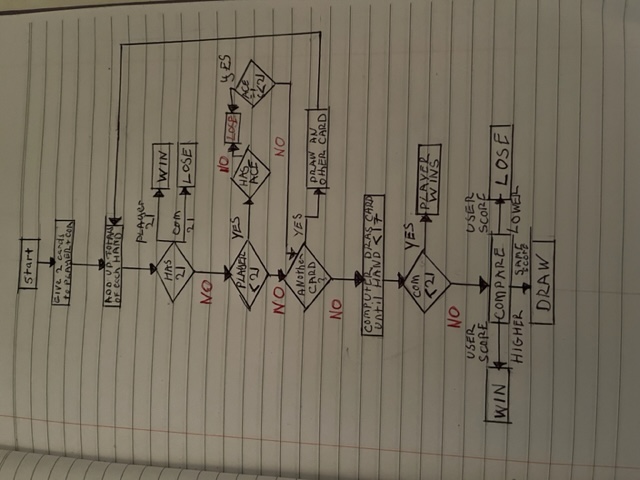 Start
Give 2 cards
to PLAYER + COM
ADD UP TOTAL
OF each HAND
player
21
WIN
HAS
21
com
21
LOSE
NO
PLAYER
<21
YES
HAS
ACE
NO
LOSE
YES
ACE
=1
<21
NO
NO
ANother
CARD
?
YES
DRAW AN
OTHER CARD
NO
COMPUTER DRAS CARD
until HAND <17
COM
<21
YES
PLAYER
WINS
NO
USER
SCORE
USER
SCORE
WIN
COMPARE
LOSE
HIGHER
SAME
score
LOWER
DRAW